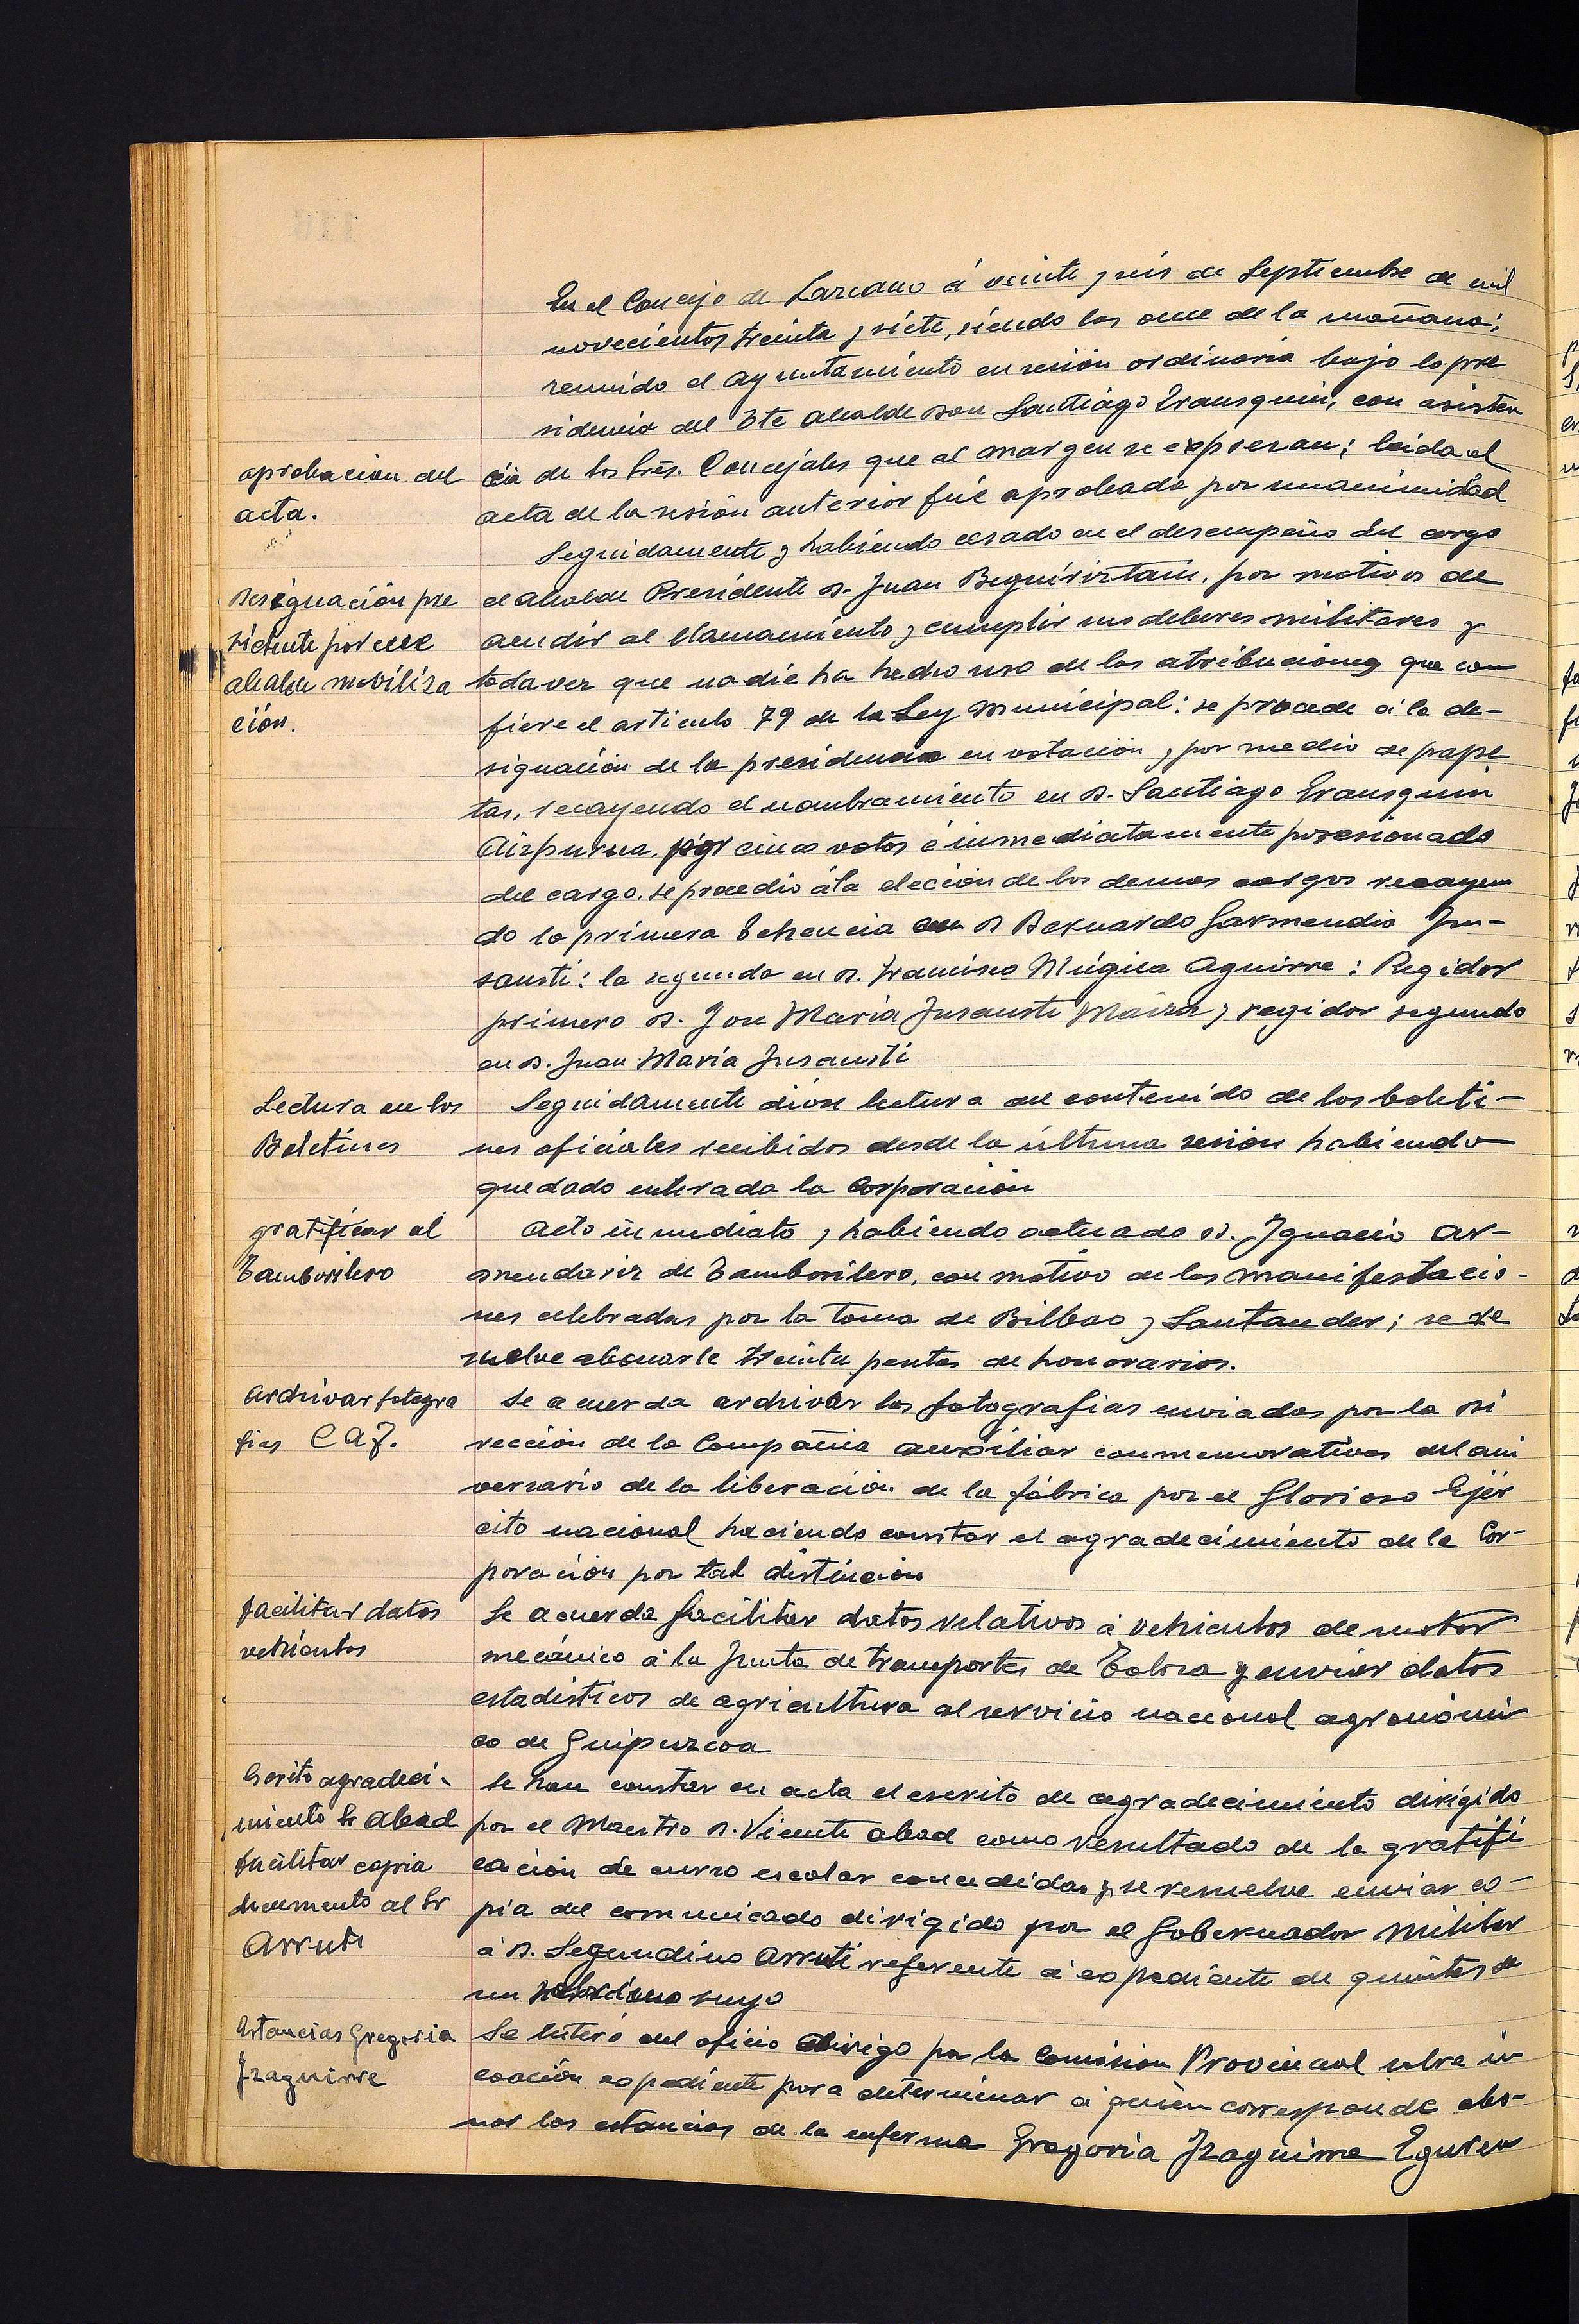 En el Concejo de Lazcano á veinte y seis de Septiembre de mil
novecientos treinta y siete, siendo las once de la mañana;
reunido el Ayuntamiento en sesión ordinaria bajo la pre
sidencia del Tte Alcalde Don Santiago Irausquin, con asisten
aprobacion del
acta.
cia de los Sres. Concejales que al margen se expresan; leida el
acta de la sesión anterior fué aprobada por unanimidad
Seguidamente y habiendo cesado en el desempeño del cargo
Designación pre
sidente por cese
alcalde moviliza
ción.
el alcalde Presidente D. Juan Beguiristain, por motivos de
acudir al llamamiento y cumplir sus deberes militares y
toda vez que nadie ha hecho uso de las atribuciones que con
fiere el articulo 79 de la Ley Municipal: se procede á la de-
signación de la presidencia en votación y por medio de pape
tas, recayendo el nombramiento en D. Santiago Irausquin
Aizpurua, por cinco votos é inmediatamente posesionado
del cargo. se procedió á la elección de los demas cargos recayen
do la primera Tenencia en D Bernardo Garmendia In-
sausti: la segunda en D. Francisco Múgica Aguirre: Regidor
primero D. Jose Maria Insausti Maiza y regidor segundo
en D. Juan Maria Insausti
Lectura en los
Boletines
Seguidamente dióse lectura del contenido de los boleti-
nes oficiales recibidos desde la última sesión habiendo
quedado enterada la Corporación
gratificar al
Tamborilero
Acto inmediato y habiendo actuado D. Ignacio Ar-
mendariz de Tamborilero, con motivo de las manifestacio-
nes celebradas por la toma de Bilbao y Santander; se re
suelve abonarle treinta pesetas de honorarios.
Archivar fotogra
fias CAF.
Se acuerda archivar las fotografias enviadas por la Di
rección de la Compañia auxiliar conmemorativas del ani
versario de la liberación de la fábrica por el Glorioso Ejér
cito nacional haciendo constar el agradecimiento de la Cor-
poración por tal distinción
facilitar datos
vehículos
Se acuerda facilitar datos relativos á vehiculos de motor
mecánico á la Junta de transportes de Tolosa y enviar datos
estadisticos de agricultura al servicio nacional agronómi
co de Guipuzcoa
Escrito agradeci-
miento Sr Abad
facilitar copia
documento al Sr
Arruti
Se hace constar en acta el escrito de agradecimiento dirigido
por el Maestro D. Vicente Abad como resultado de la gratifi
cación de curso escolar concedidas y se resuelve enviar co-
pia del comunicado dirigido por el Gobernador Militar
á D. Segundino Arruti referente á expediente de quintas de
un sobrino suyo
Estancias Gregoria
Izaguirre
Se enteró del oficio dirigo por la Comision Provincial sobre in
coación expediente para determinar á quien corresponde abo-
nar las estancias de la enferma Gregoria Izaguirre Eguren